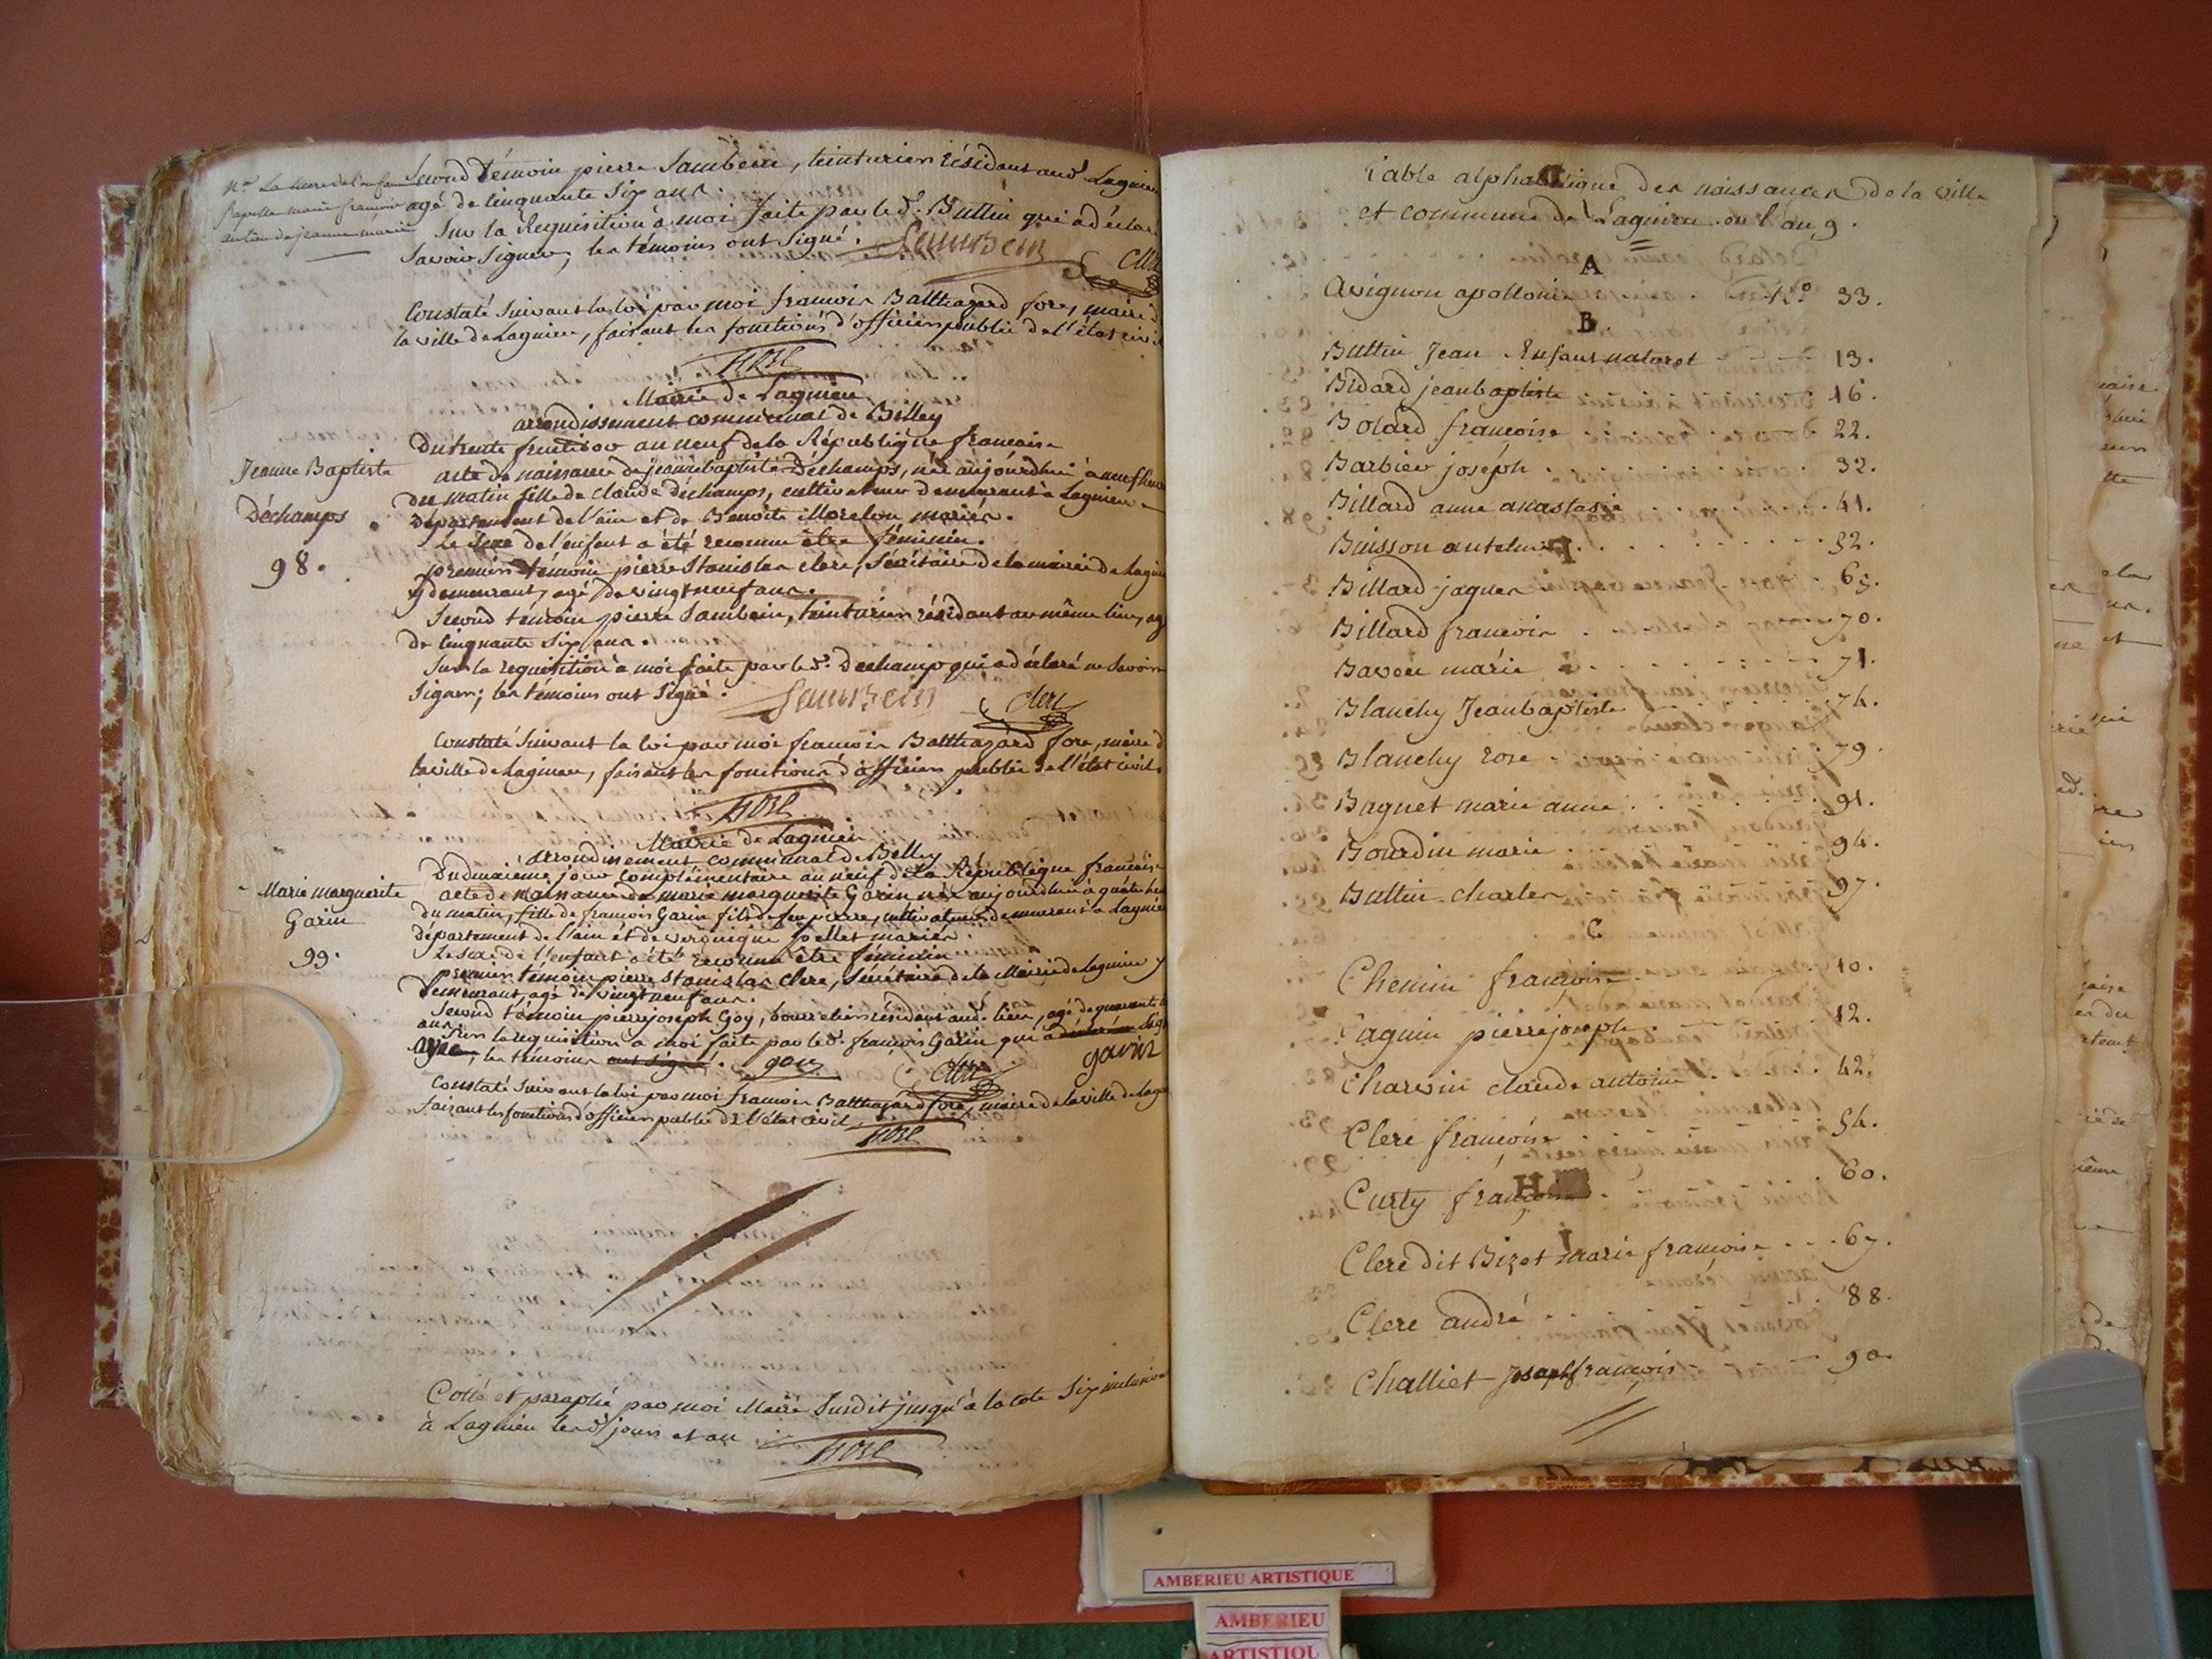 Second témoin pierre Sambein, teinturier résidant aud. Lagnieu
agé de cinquante Six ans.
Sur la Requisition à moi faite par le d. Buttin qui a déclaré
Savoir Signer, les témoins ont Signé.
Constaté Suivant la loi par moi francois Balthazard fore, maire d
la ville de Lagnieu, faisant les fonctions d'officier public de l'état civil
Mairie de Lagnieu
arrondissement communal de Belley
Du trente fructidor an neuf de la République francaise
Jeanne Baptiste
Déchamps
98.
acte de naissance de jeanne baptiste Déchamps, née aujourdhui à neuf heu
du matin fille de claude déchamps, cultivateur demeurant à Lagnieu
département de l'ain et de Benoite Morelon mariés.
Le Sexe de l'enfant a été reconnu être féminin.
premier témoin pierre Stanislas clerc, Sécrétaire de la mairie de Lagni
y demeurant, agé de vingt neuf ans.
Second témoin pierre Sambein, teinturier résidant au même lieu, ag
de cinquante Six ans.
Sur la requisition à moi faite par le d. Dechamps qui a déclaré ne Savoir
Signer; les témoins ont Signé.
Sambein clerc
Constaté Suivant la loi par moi francois Balthazard fore, maire d
la ville de Lagnieu, faisant les fonctions d'officier public de l'état civil.
Mairie de Lagnieu
arrondissement communal de Belley
Marie marguerite
Garin
99.
jour complémentaire an neuf de la République francaise
acte de naissance de marie marguerite Garin née aujourdhui à quatre heu
du matin, fille de francois Garin fils de feu pierre, cultivateur demeurant à Lagnieu
département de l'ain et de veronique pellet mariés.
Le Sexe de l'enfant a été reconnu être féminin
premier témoin pierre Stanislas clerc, Sécrétaire de la Mairie de Lagnieu y
demeurant, agé de vingt neuf ans.
Second témoin pierre joseph Goy, bourrelier résidant aud. lieu, agé de quarante
ans
Sur la requisition à moi faite par le d. françois Garin qui a
les témoins ont signé. goy clerc garin
Constaté Suivant la loi par moi francois Balthazard fore, maire de la ville de Lagn
faisant les fonctions d'officier public de l'état civil
Cotté et paraphé par moi Maire Susdit jusqu'à la cote Six inclusive
à Lagnieu les d. jours et an
Table alphabétique des naissances de la ville
et commune de Lagnieu en l'an 9.
A
Avignon apollonie N.º 33.
B
Buttin Jean Enfant naturel 13.
Bidard jeanbaptiste 16.
Bolard françoise 22.
Barbier joséph 32.
Billard anne anastasie 41.
Buisson antelme 52.
Billard jaques 65.
Billard francois 70.
Baveu marie 71.
Blanchy Jeanbaptiste 74.
Blanchy rose 79.
Baquet marie anne 91.
Bourdin marie 94.
Buttin charles 97.
C
Chemin françoise 10.
Caquin pierrejoseph 12.
Charvin claude antoine 42.
Clerc françoise 54.
Curty françois 60.
Clerc dit Bizet marie françoise 67.
Clerc andré 88.
Challiet Joseph françois 90.
AMBERIEU ARTISTIQUE
AMBERIEU
ARTISTIQU